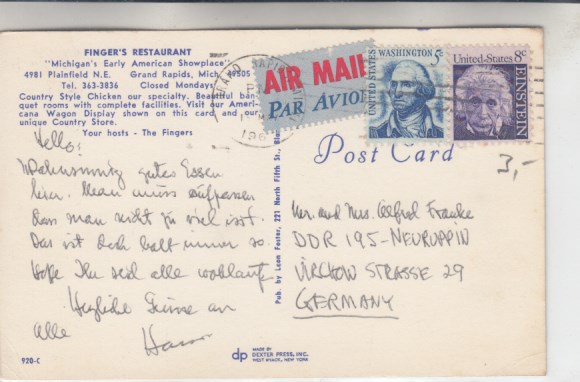 FINGER'S RESTAURANT
"Michigan's Early American Showplace"
4981 Plainfield N.E. Grand Rapids, Mich. 49505
Tel. 363-3836 Closed Mondays
Country Style Chicken our specialty. Beautiful ban-
quet rooms with complete facilities. Visit our Ameri-
cana Wagon Display shown on this card and our
unique Country Store.
Your hosts - The Fingers
AIR MAIL
PAR AVION
WASHINGTON 5c
UNITED STATES
United States 8c
EINSTEIN
Post Card
3,-
Hello!
Wahnsinnig gutes Essen
hier. Man muss aufpassen
dass man nicht zu viel isst.
Das ist doch halt immer so
Hoffe Ihr seid alle wohlauf
Herzliche Grüsse an
alle
Mr. and Mrs. Alfred
DDR 195-NEURUPPIN
VIRCHOW STRASSE 29
GERMANY
Pub. by Leon Foster, 221 North Fifth St.,
920-C
dp
MADE BY
DEXTER PRESS, INC.
WEST NYACK, NEW YORK